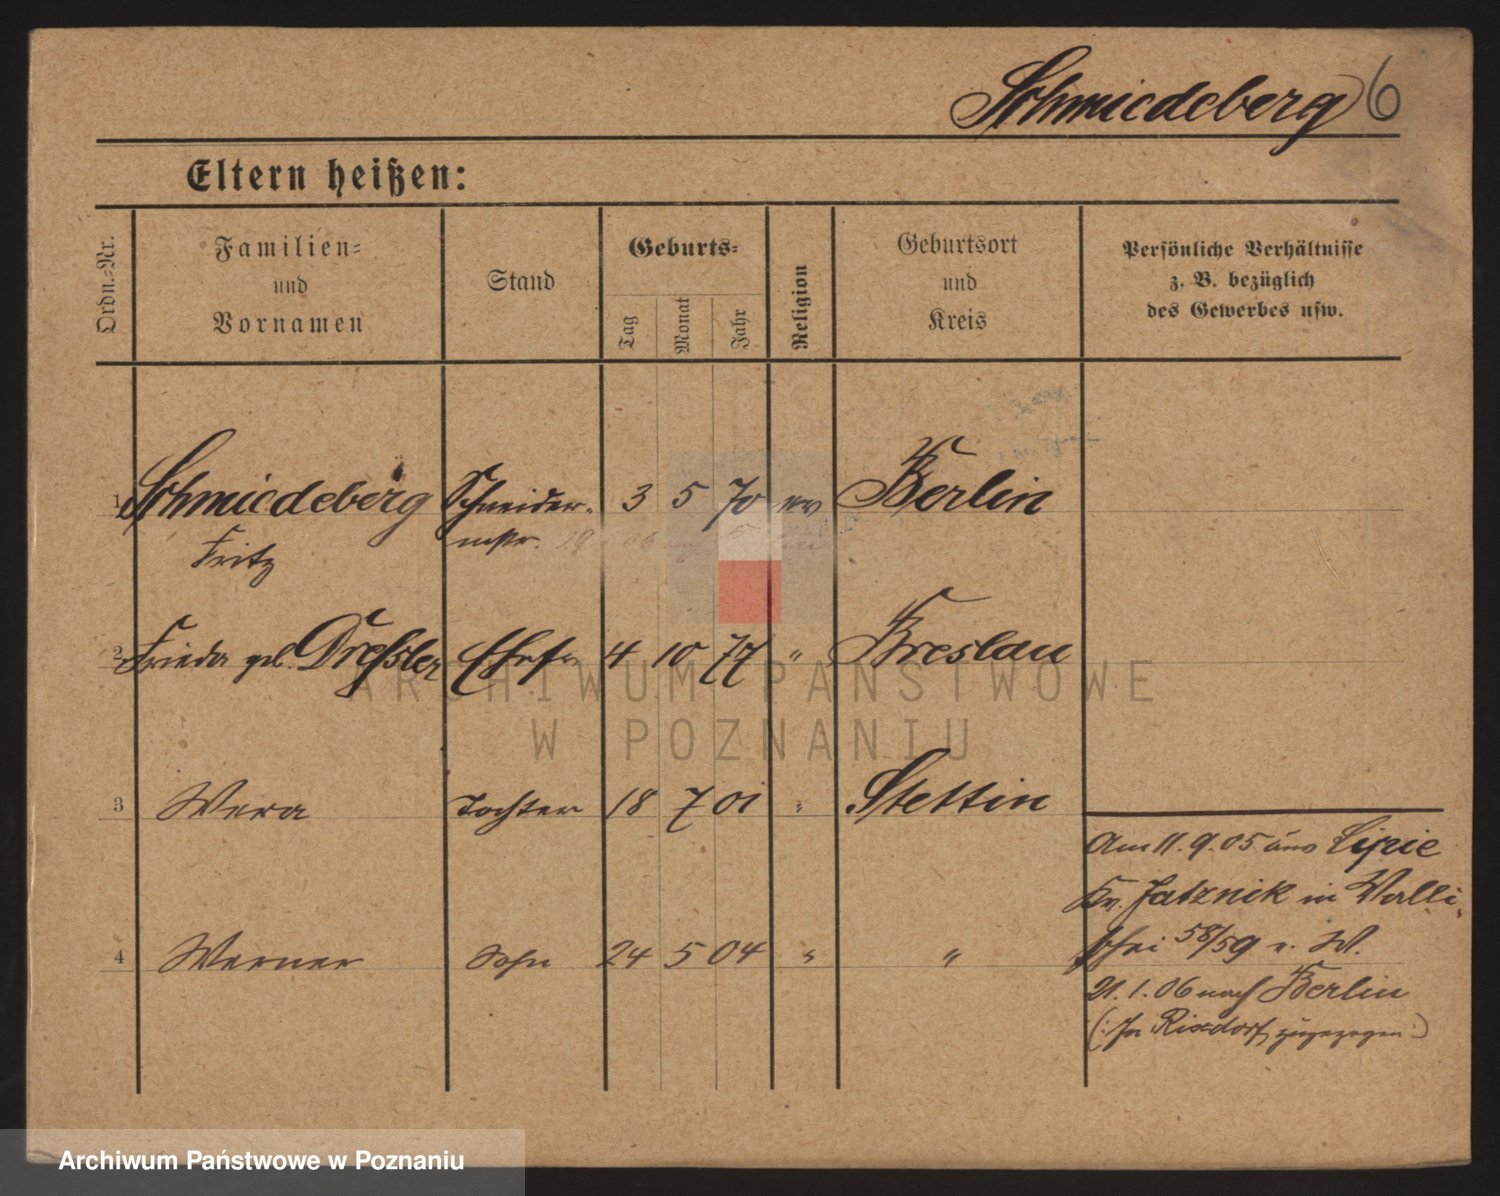 Schmiedeberg 6
Eltern heißen:
Ordn.-Nr.
Familien-
und
Vornamen
Stand
Geburts-
Tag
Monat
Jahr
Religion
Geburtsort
und
Kreis
Persönliche Verhältnisse
z. B. bezüglich
des Gewerbes usw.
1 Schmiedeberg Schneider- 3 5 70 ev Berlin
Fritz mstr.
2 Frieda geb. Dreßler Ehefr 4 10 77 " Breslau
3 Wera Tochter 18 7 01 " Stettin
4 Werner Sohn 24 5 04 " "
Am 11.9.05 aus Lipie
Kr. Jatznik in Walli
58/59 v. W.
21.1.06 nach Berlin
(: In Rixdorf zugezogen :)
ARCHIWUM PAŃSTWOWE
W POZNANIU
Archiwum Państwowe w Poznaniu